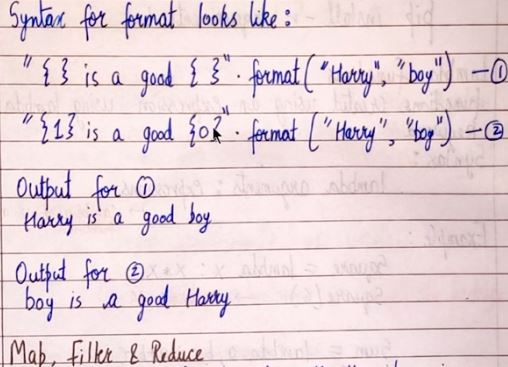 Syntax for format looks like :
"{ } is a good { }". format("Harry", "boy") —①
"{1} is a good {0}". format ("Harry", "boy") —②
Output for ①
Harry is a good boy
Output for ②
boy is a good Harry
Map, Filter & Reduce